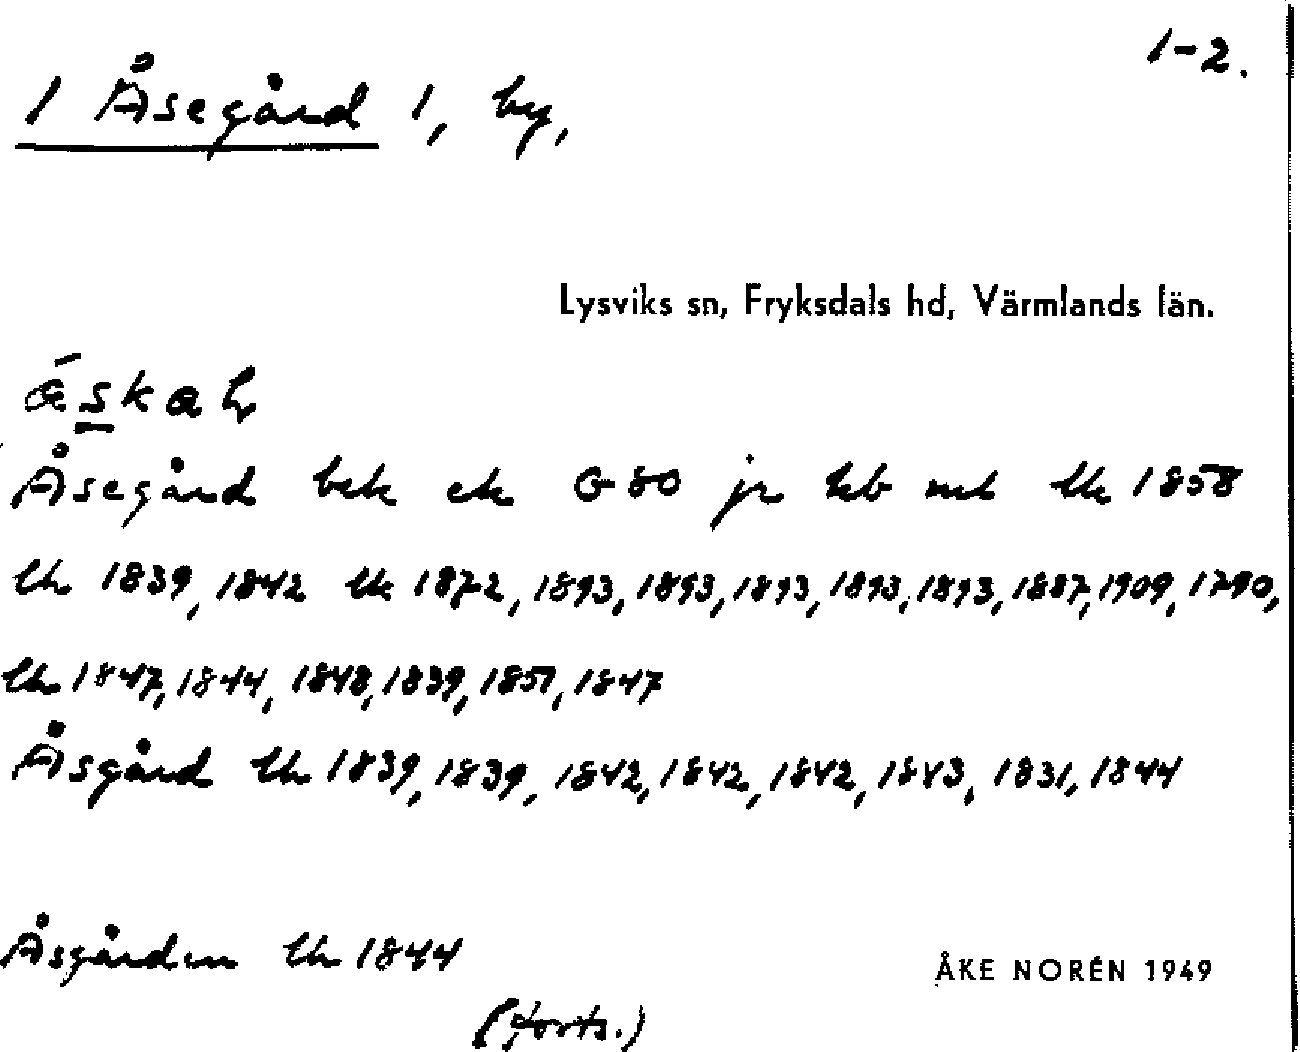 1-2.
1 Åsegård 1, by,
Lysviks sn, Fryksdals hd, Värmlands län.
áskaḷ
Åsegård bek ek G 80 jr kb mb lk 1858
lk 1839, 1842 lk 1872, 1893, 1893, 1893, 1893, 1893, 1887, 1909, 1790,
lk 1847, 1844, 1848, 1839, 1851, 1847
Åsgård lk 1839, 1839, 1842, 1842, 1842, 1843, 1831, 1844
Åsgården lk 1844
ÅKE NORÉN 1949
(forts.)